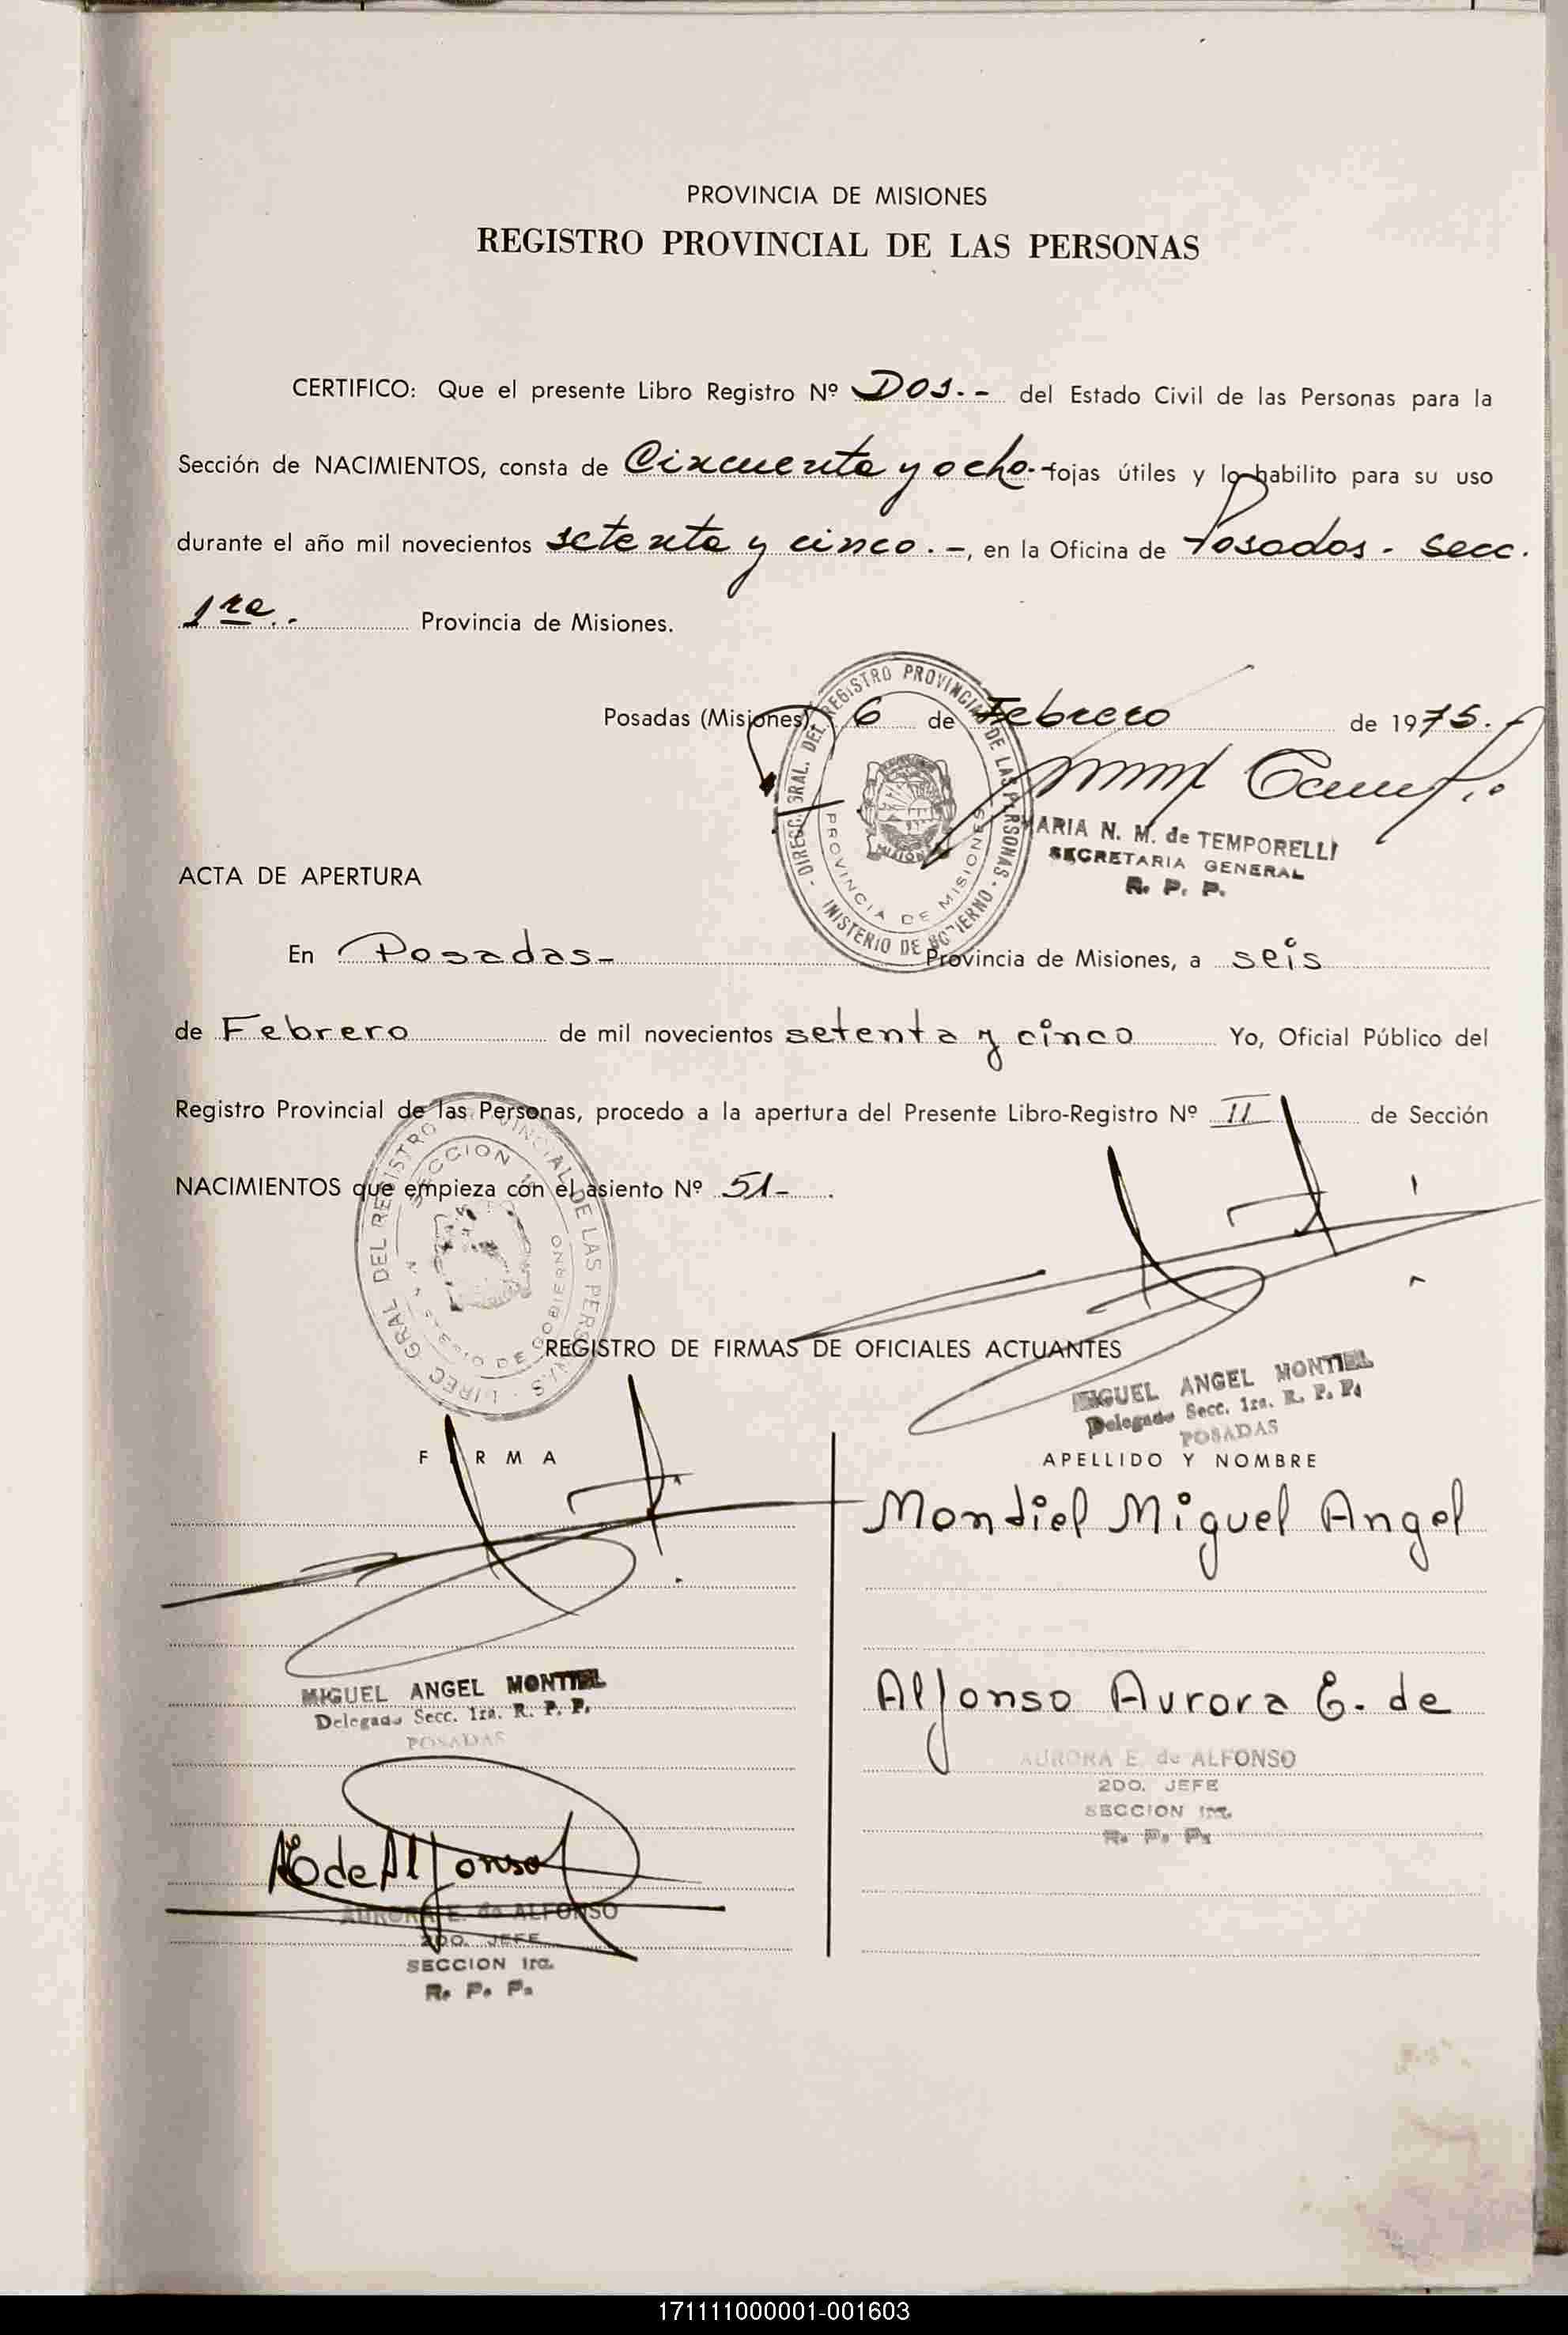 PROVINCIA DE MISIONES
REGISTRO PROVINCIAL DE LAS PERSONAS
CERTIFICO: Que el presente Libro Registro Nº Dos.- del Estado Civil de las Personas para la
Sección de NACIMIENTOS, consta de Cincuenta y ocho.- fojas útiles y lo habilito para su uso
durante el año mil novecientos setenta y cinco.-, en la Oficina de Posadas - Secc.
1ra.. Provincia de Misiones.
Posadas (Misiones), 6 de Febrero de 1975.-
DIRECC. GRAL. DEL REGISTRO PROVINCIAL DE LAS PERSONAS - MINISTERIO DE GOBIERNO -
PROVINCIA DE MISIONES
MARIA N. M. de TEMPORELLI
SECRETARIA GENERAL
R. P. P.
ACTA DE APERTURA
En Posadas- Provincia de Misiones, a seis
de Febrero de mil novecientos setenta y cinco Yo, Oficial Público del
Registro Provincial de las Personas, procedo a la apertura del Presente Libro-Registro Nº II de Sección
NACIMIENTOS que empieza con el asiento Nº 51-.
REGISTRO DE FIRMAS DE OFICIALES ACTUANTES
MIGUEL ANGEL MONTIEL
Delegado Secc. 1ra. R. P. P.
POSADAS
FIRMA
APELLIDO Y NOMBRE
Montiel Miguel Angel
MIGUEL ANGEL MONTIEL
Delegado Secc. 1ra. R. P. P.
POSADAS
Alfonso Aurora E. de
AURORA E. de ALFONSO
2DO. JEFE
SECCION 1ra.
R. P. P.
AE de Alfonso
AURORA E. de ALFONSO
2DO. JEFE
SECCION 1ra.
R. P. P.
171111000001-001603